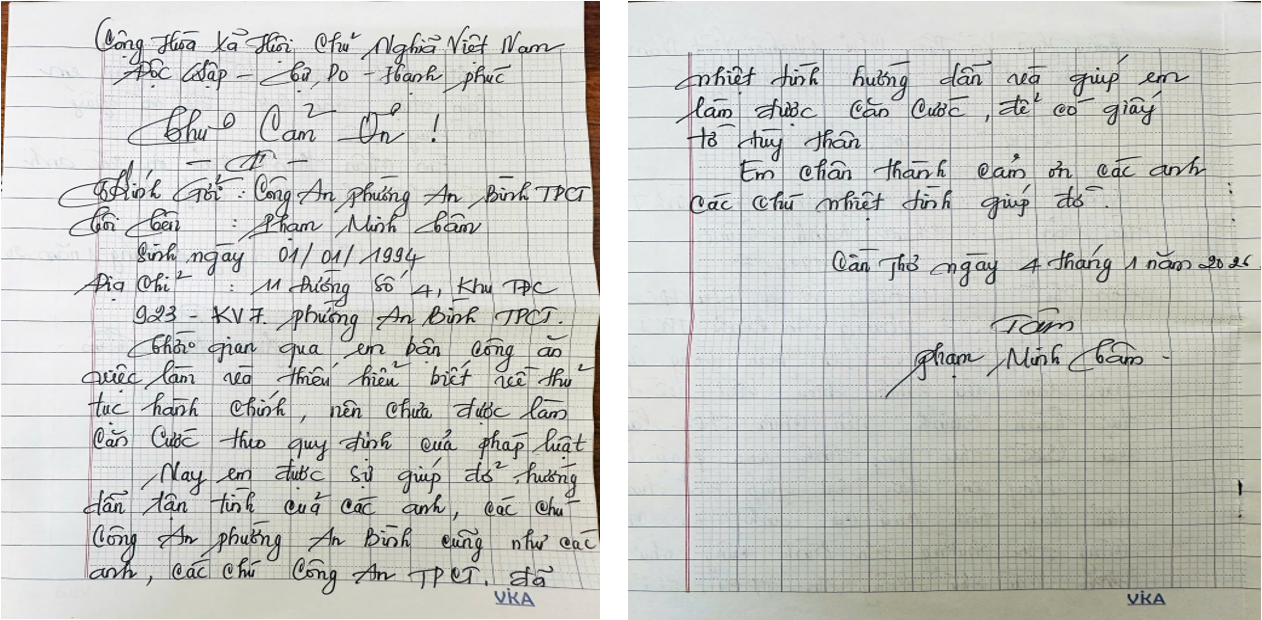 Cộng Hòa Xã Hội Chủ Nghĩa Việt Nam
Độc Lập - Tự Do - Hạnh phúc
Thư Cảm Ơn !
Kính Gởi : Công An phường An Bình TPCT
Tôi tên : Phạm Minh Tâm
Sinh ngày 01/01/1994
Địa chỉ : 11 Đường Số 4, Khu TĐC
923 - KV7. phường An Bình TPCT.
Thời gian qua em bận công ăn
việc làm và thiếu hiểu biết về thủ
tục hành chính, nên chưa được làm
Căn Cước theo quy định của pháp luật
Nay em được sự giúp đỡ, hướng
dẫn tận tình của các anh, các chú
Công An phường An Bình cũng như các
anh, các chú Công An TPCT. đã
VIKA
nhiệt tình hướng dẫn và giúp em
làm được Căn Cước, để có giấy
tờ tùy thân
Em chân thành cảm ơn các anh
các chú nhiệt tình giúp đỡ.
Cần Thơ ngày 4 tháng 1 năm 2026
Tâm
Phạm Minh Tâm -
VIKA